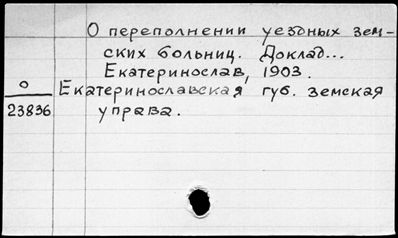 О переполнении уездных зем-
ских больниц. Доклад...
Екатеринослав, 1903.
О
Екатеринославская губ. земская
23836
управа.